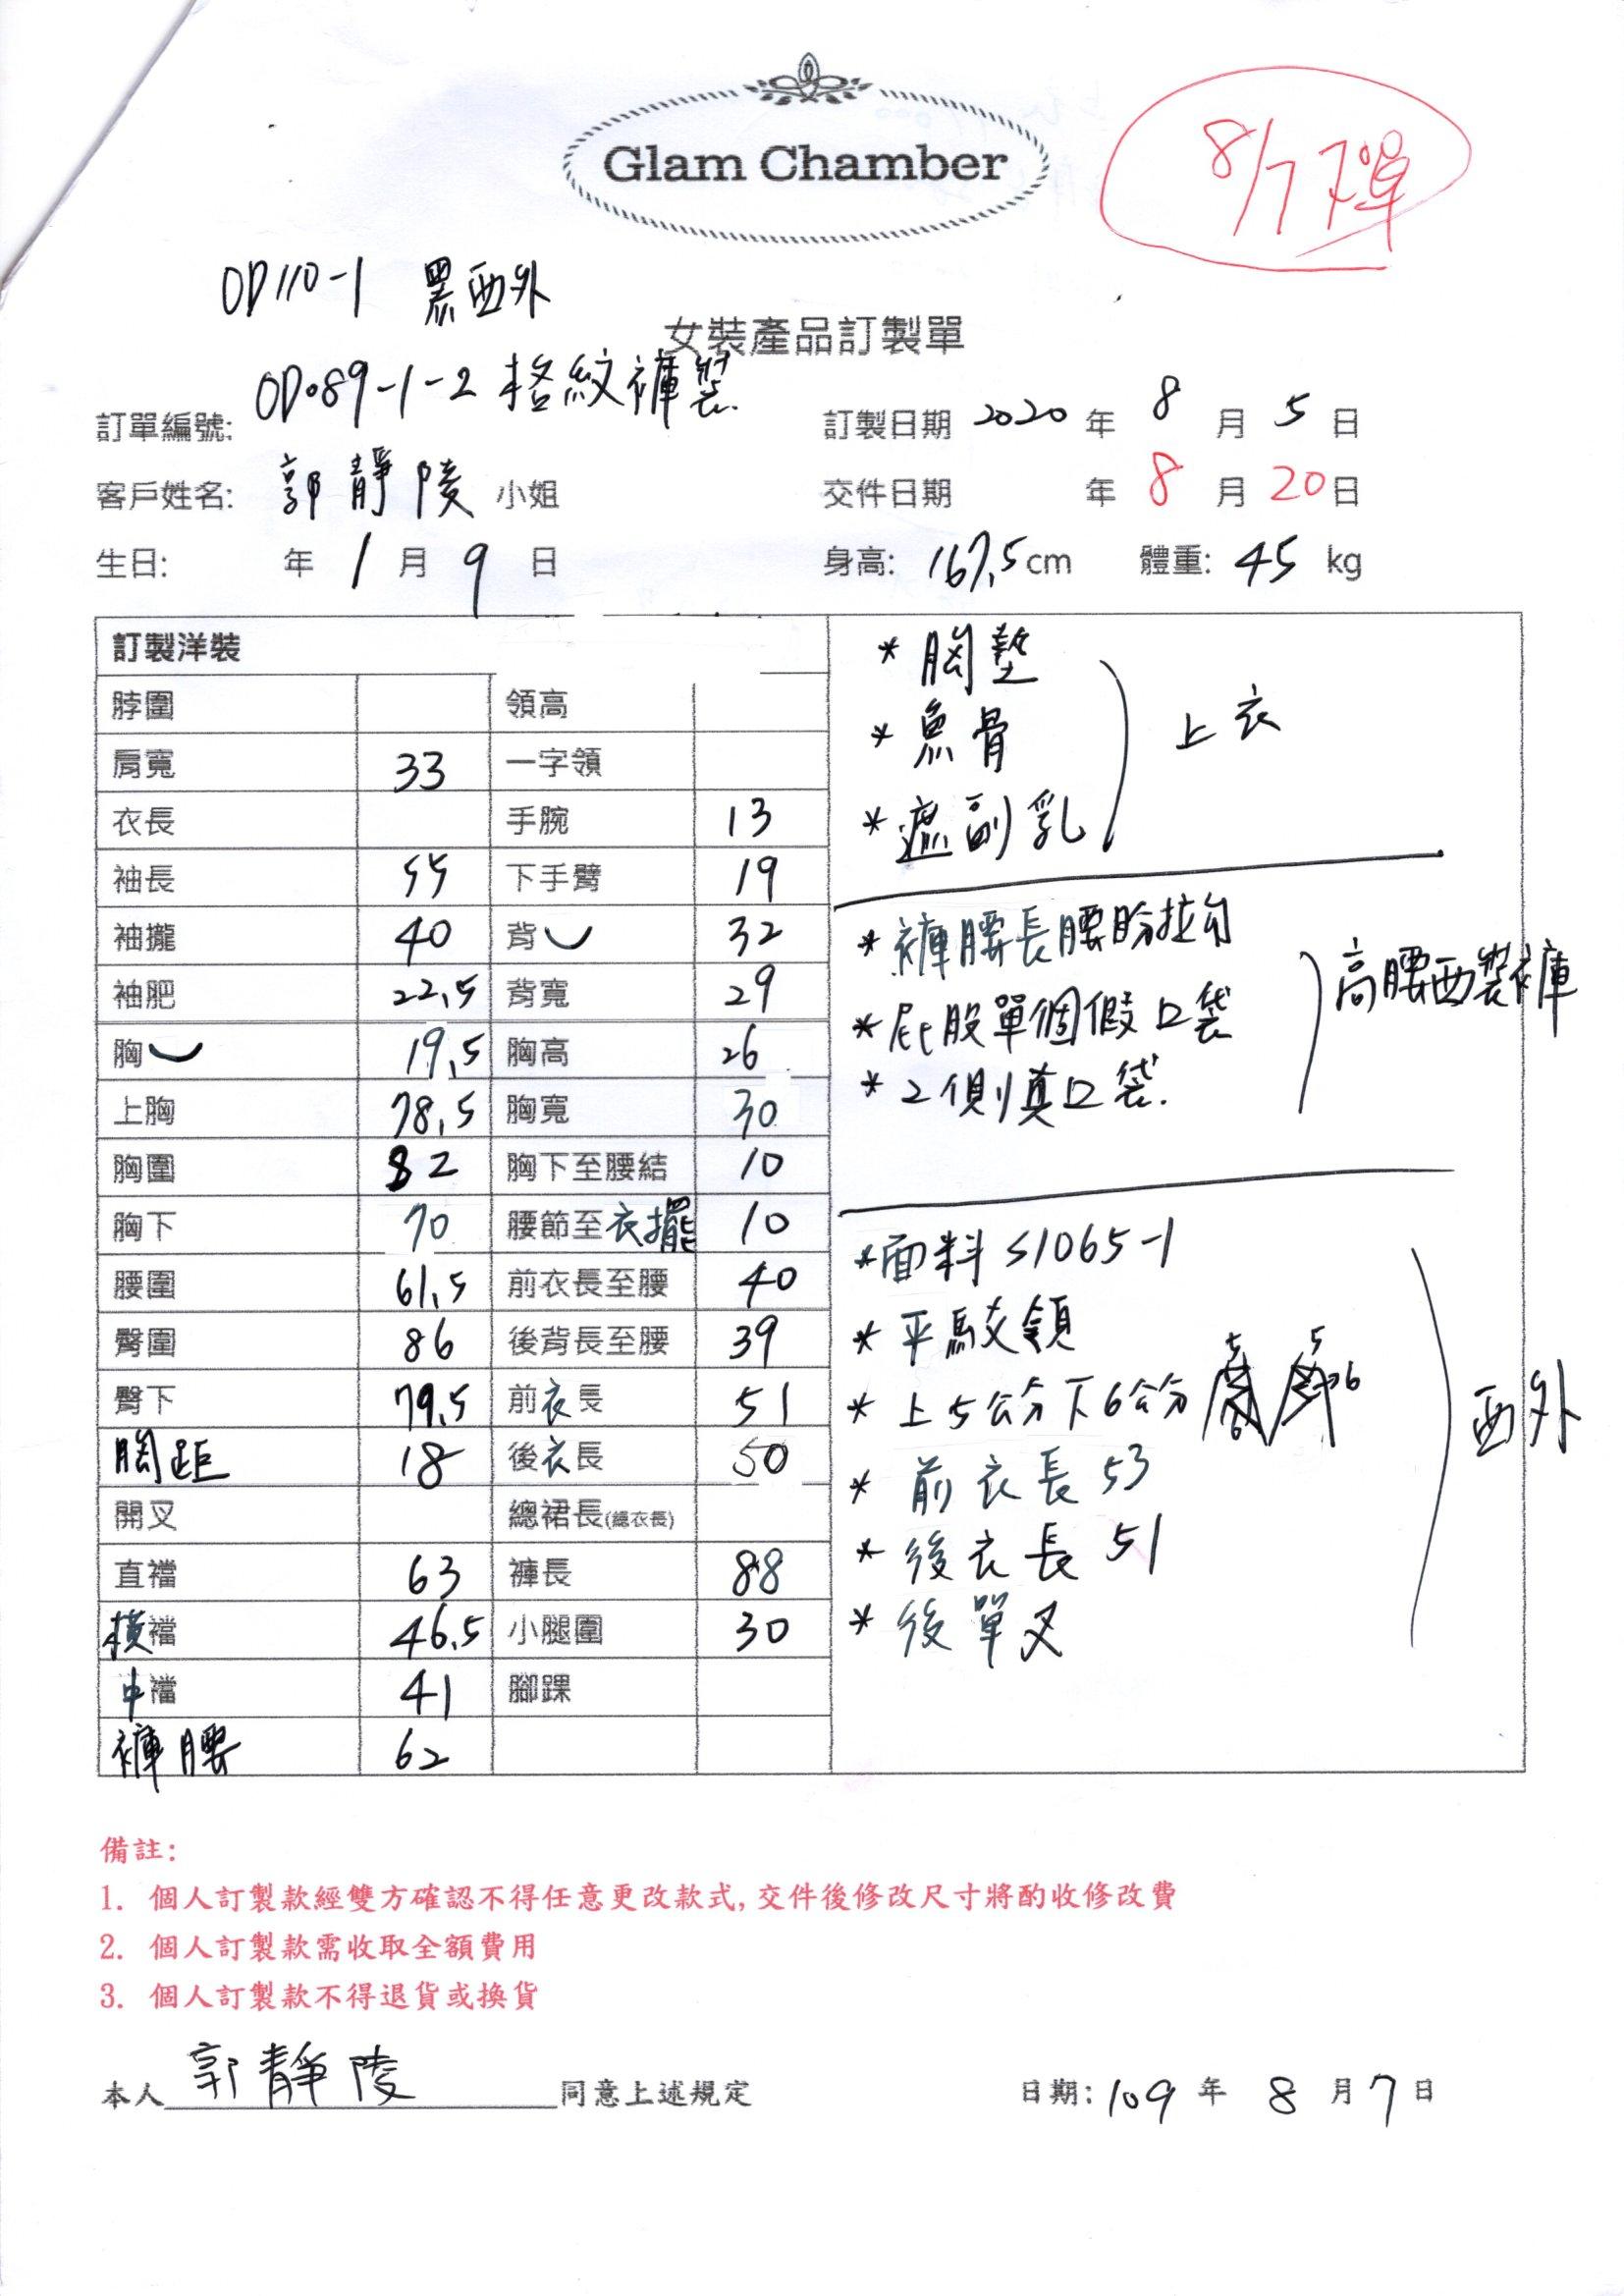 Glam Chamber
8/7 下單
OD110-1 黑西外
女裝產品訂製單
OD089-1-2 格紋褲裝
訂單編號:
訂製日期 2020 年 8 月 5 日
客戶姓名: 郭靜陵 小姐
交件日期 年 8 月 20 日
生日: 年 1 月 9 日
身高: 167.5 cm 體重: 45 kg
訂製洋裝
脖圍 領高
肩寬 33 一字領
衣長 手腕 13
袖長 55 下手臂 19
袖攏 40 背 32
袖肥 22.5 背寬 29
胸 19.5 胸高 26
上胸 78.5 胸寬 30
胸圍 82 胸下至腰結 10
胸下 70 腰節至衣擺 10
腰圍 61.5 前衣長至腰 40
臀圍 86 後背長至腰 39
臀下 79.5 前衣長 51
胸距 18 後衣長 50
開叉 總裙長(總衣長)
直襠 63 褲長 88
橫襠 46.5 小腿圍 30
中襠 41 腳踝
褲腰 62
* 胸墊
* 魚骨
* 遮副乳
上衣
* 褲腰長腰 拉勾
* 屁股單個假口袋
* 2側真口袋.
高腰西裝褲
* 面料 S1065-1
* 平駁領
* 上5公分下6公分
5 6
* 前衣長 53
* 後衣長 51
* 後單叉
西外
備註:
1. 個人訂製款經雙方確認不得任意更改款式, 交件後修改尺寸將酌收修改費
2. 個人訂製款需收取全額費用
3. 個人訂製款不得退貨或換貨
本人 郭靜陵 同意上述規定
日期: 109 年 8 月 7 日